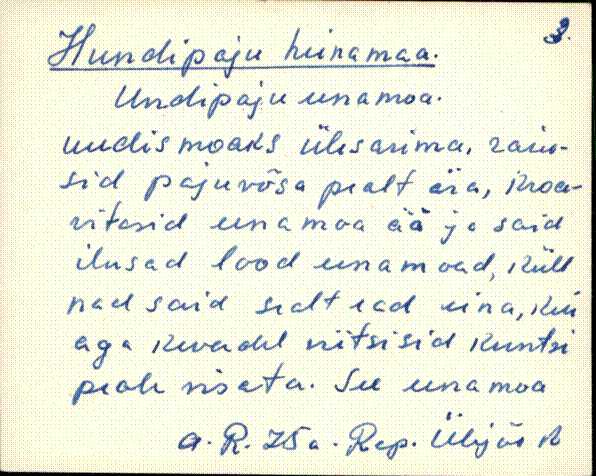 3.
Hundipaju heinamaa.
Undipaju einamoa.
uudismoaks ülesarima, raiu-
sid pajuvõsa pealt ära, kroa-
vitasid einamoa ää ja said
ilusad lood einamoad, küll
nad said sealt ead eina, kui
aga kevadel viitsisid kuntsi
peale visata. See einamoa
a. R. 75 a. Rap. Ülejõe k